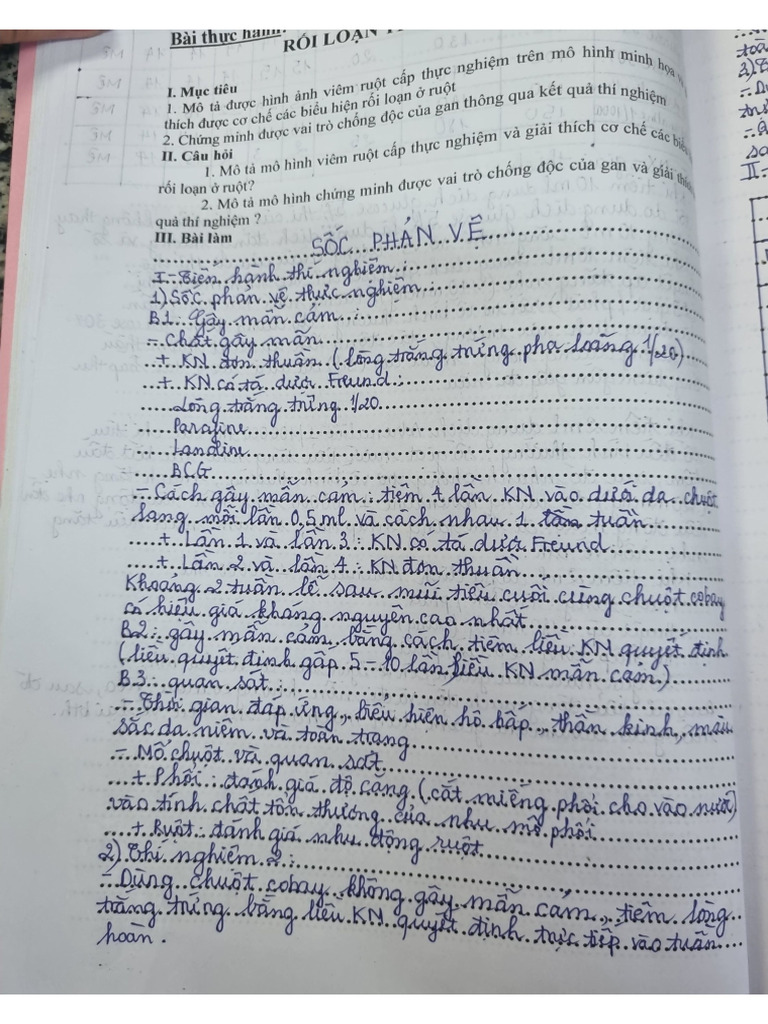 Bài thực hành:
RỐI LOẠN T
I. Mục tiêu
1. Mô tả được hình ảnh viêm ruột cấp thực nghiệm trên mô hình minh họa và
thích được cơ chế các biểu hiện rối loạn ở ruột
2. Chứng minh được vai trò chống độc của gan thông qua kết quả thí nghiệm
II. Câu hỏi
1. Mô tả mô hình viêm ruột cấp thực nghiệm và giải thích cơ chế các biểu
rối loạn ở ruột?
2. Mô tả mô hình chứng minh được vai trò chống độc của gan và giải thích
quả thí nghiệm ?
III. Bài làm
SỐC PHẢN VỆ
I- Tiến hành thí nghiệm
1) Sốc phản vệ thực nghiệm :
B1: Gây mẫn cảm :
- Chất gây mẫn
+ KN đơn thuần (lòng trắng trứng pha loãng 1/20)
+ KN có tá dược Freund :
Lòng trắng trứng 1/20
Parafine
Lanoline
BCG
- Cách gây mẫn cảm : tiêm 4 lần KN vào dưới da chuột
lang mỗi lần 0,5ml và cách nhau 1 tuần
+ Lần 1 và lần 3 : KN có tá dược Freund
+ Lần 2 và lần 4 : KN đơn thuần
Khoảng 2 tuần lễ sau mũi tiêu cuối cùng chuột cobay
có hiệu giá kháng nguyên cao nhất
B2: gây mẫn cảm bằng cách tiêm liều KN quyết định
(liều quyết định gấp 5-10 lần liều KN mẫn cảm)
B3: quan sát :
- Thời gian đáp ứng, biểu hiện hô hấp, thần kinh, màu
sắc da niêm và toàn trạng
- Mổ chuột và quan sát
+ Phổi : đánh giá độ căng (cắt miếng phổi cho vào nước)
vào tính chất tổn thương của nhu mô phổi
+ Ruột : đánh giá nhu động ruột
2) Thí nghiệm 2 :
- Dùng chuột cobay không gây mẫn cảm, tiêm lòng
trắng trứng bằng liều KN quyết định trực tiếp vào tuần
hoàn.